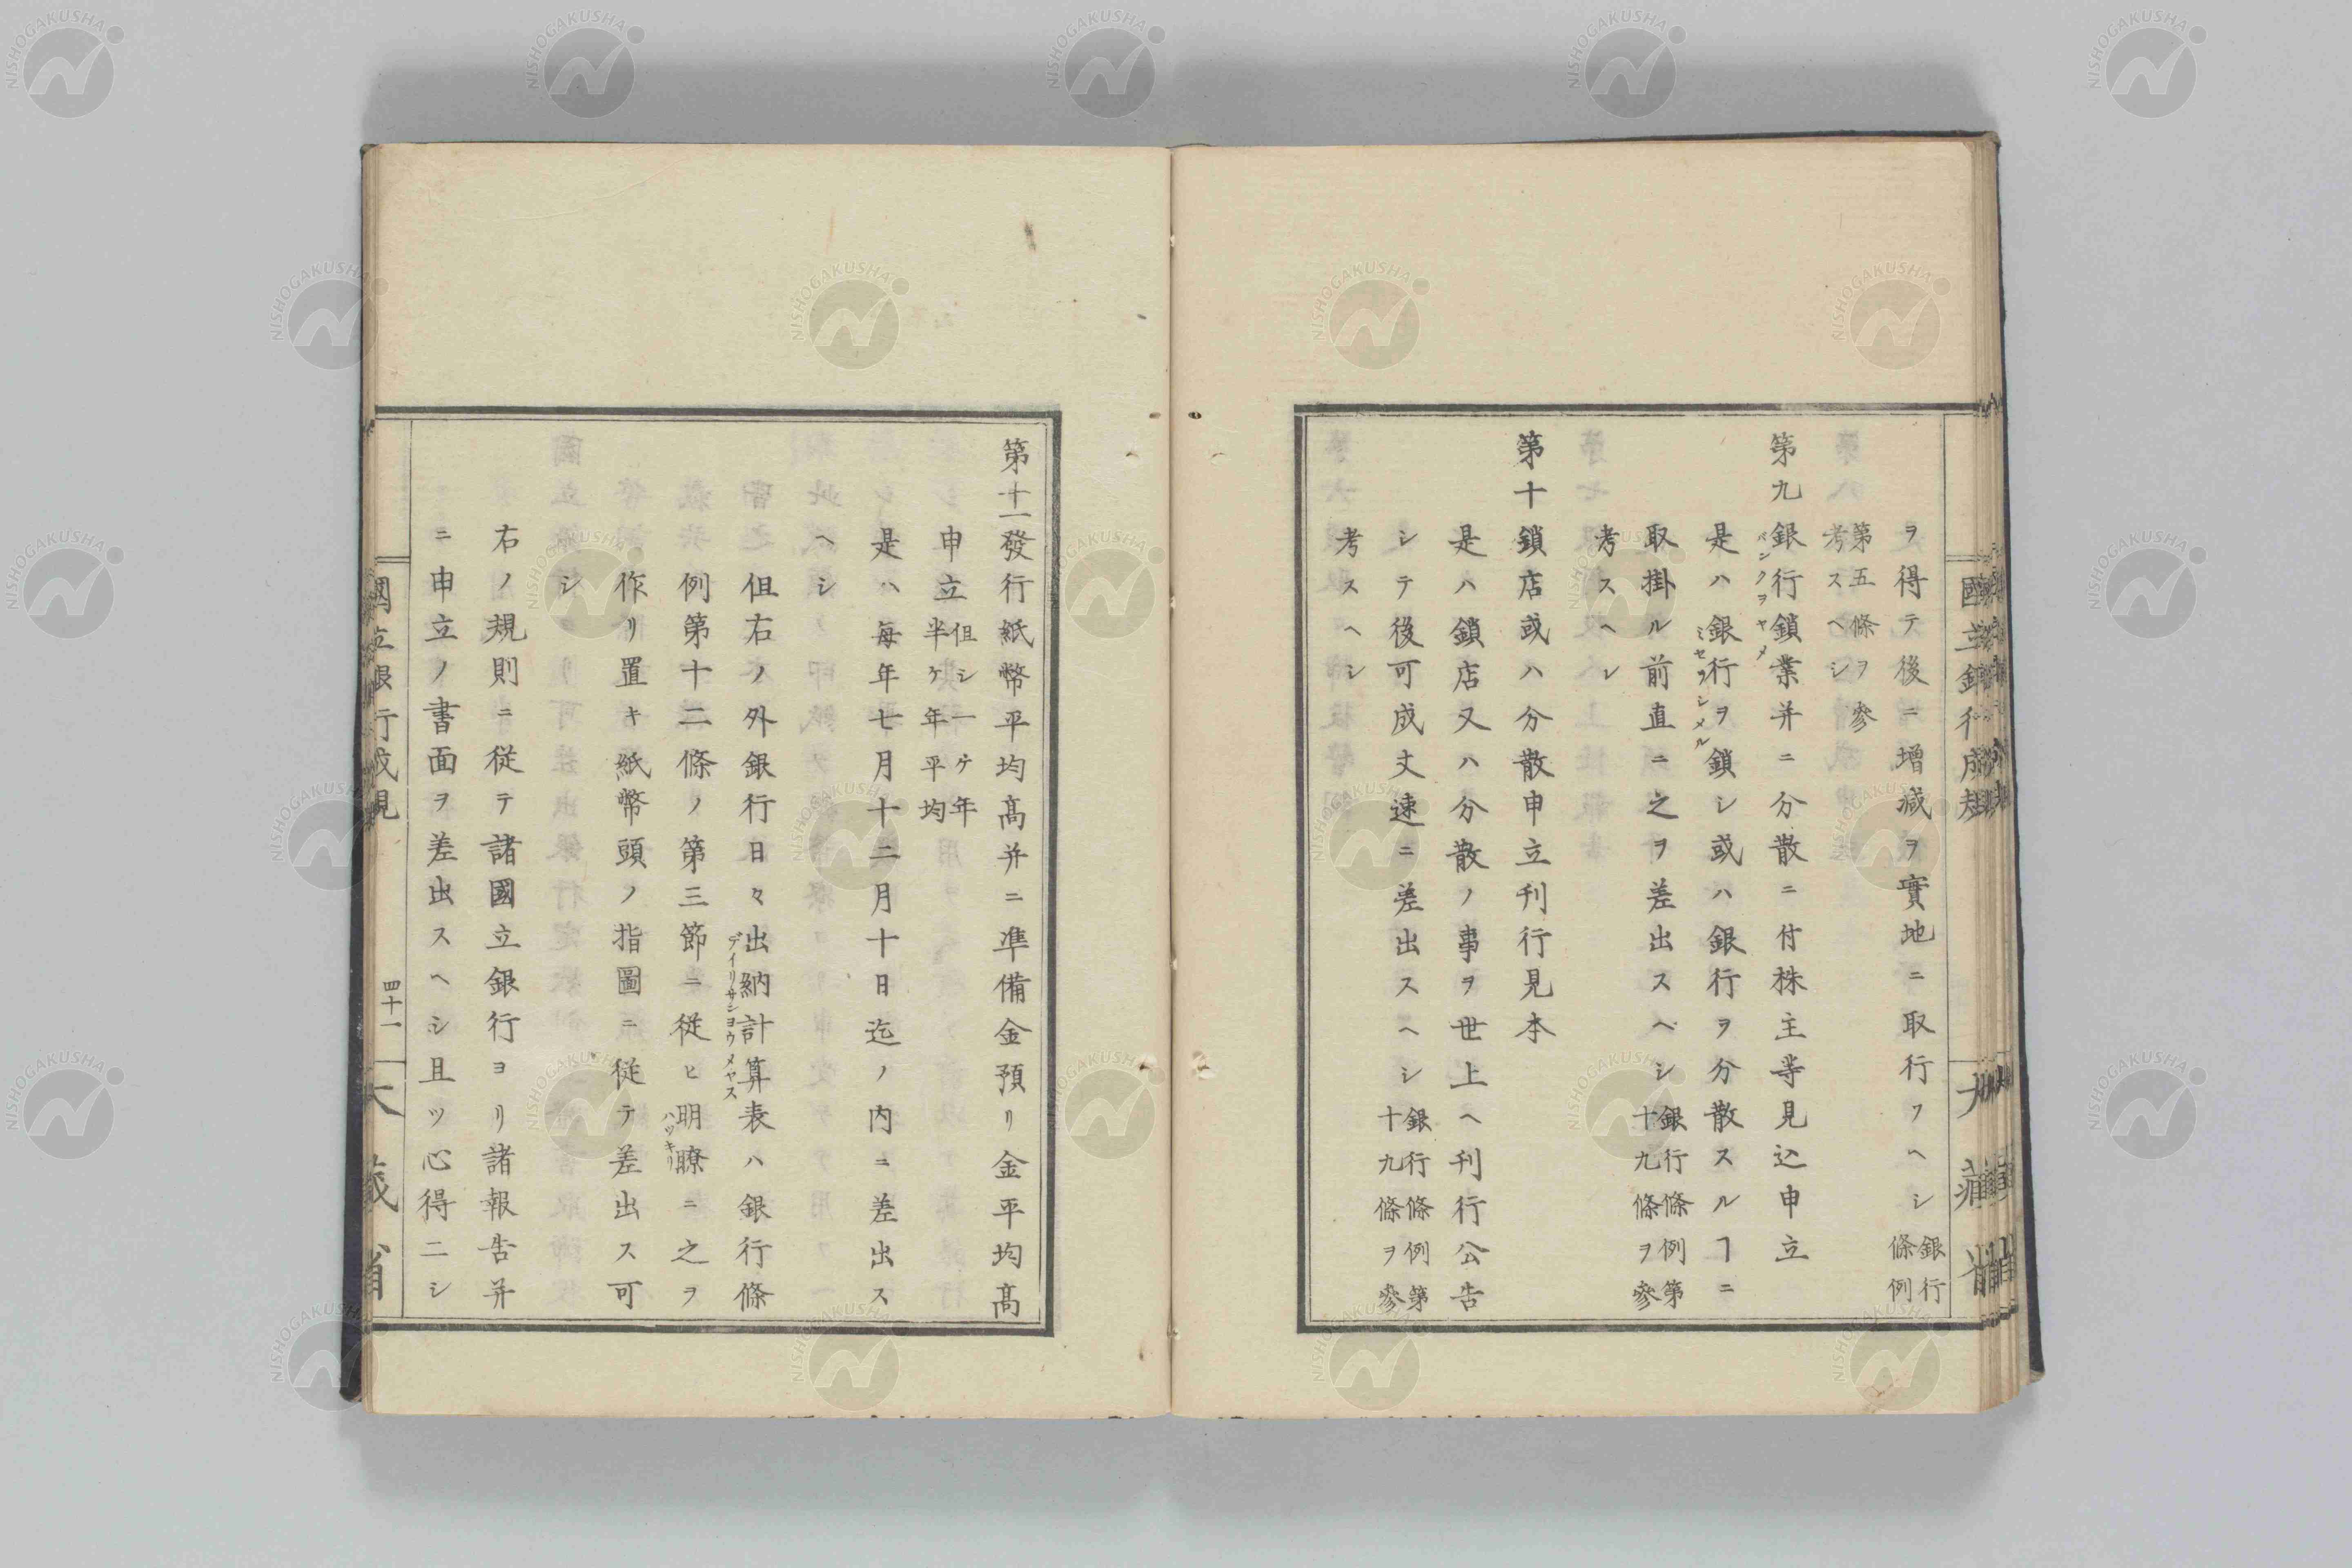 ヲ得テ後ニ増减ヲ實地ニ取行フヘシ銀行條例
第五條ヲ參考スヘシ
第九銀行鎖業并ニ分散ニ付株主等見込申立
バンクヲヤメ
是ハ銀行ヲ鎖シ或ハ銀行ヲ分散スルヿニ
ミセヲシメル
取掛ル前直ニ之ヲ差出スベシ銀行條例第十九條ヲ參
考スヘシ
第十鎖店或ハ分散申立刊行見本
是ハ鎖店又ハ分散ノ事ヲ世上ヘ刊行公告
シテ後可成丈速ニ差出スヘシ銀行條例第十九條ヲ參
考スヘシ
國立銀行成規
第十一發行紙幣平均髙并ニ凖備金預リ金平均髙
申立但シ一ケ年半ケ年平均
是ハ毎年七月十二月十日迄ノ内ニ差出ス
ヘシ
但右ノ外銀行日々出納計算表ハ銀行條
デイリサシヨウメヤス
例第十二條ノ第三節ニ從ヒ明瞭ニ之ヲ
ハツキリ
作リ置キ紙幣頭ノ指圖ニ從テ差出ス可
シ
右ノ規則ニ從テ諸國立銀行ヨリ諸報告并
ニ申立ノ書面ヲ差出スヘシ且ツ心得二シ
國立銀行成規
四十一
大藏省
NISHOGAKUSHA